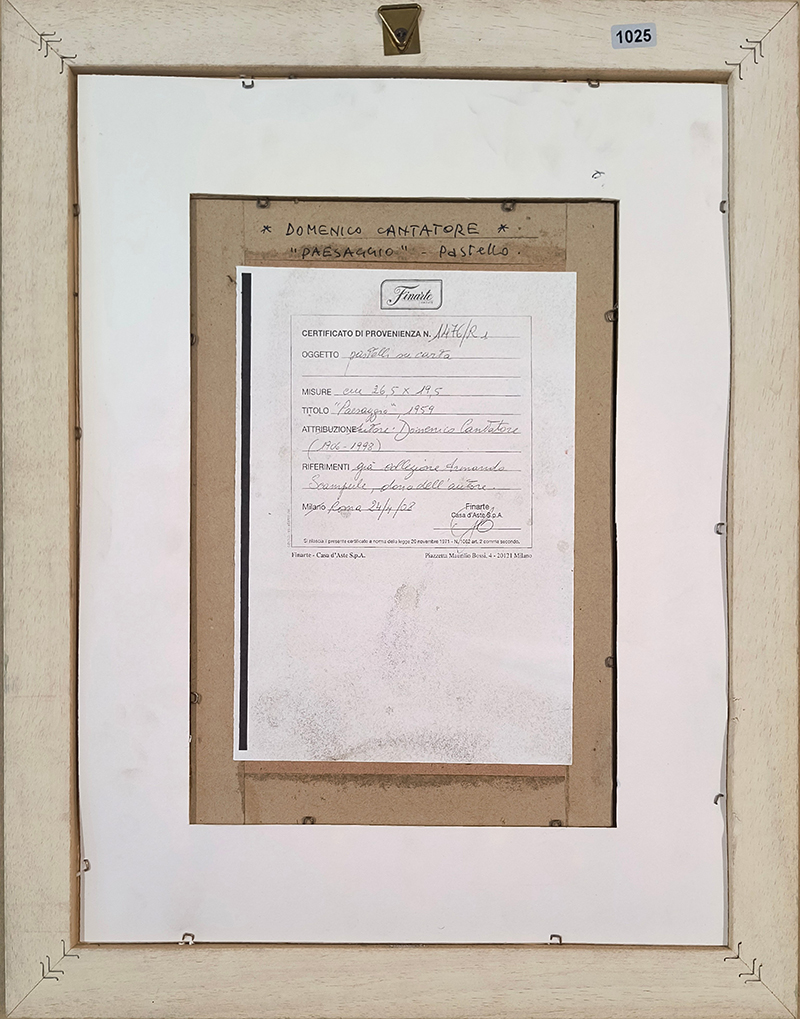 1025
* DOMENICO CANTATORE *.
"PAESAGGIO" - Pastello.
Finarte
CERTIFICATO DI PROVENIENZA N. 1476/R
OGGETTO pastelli su carta
MISURE cm 26,5 x 19,5
TITOLO "Paesaggio", 1959
ATTRIBUZIONE Autore: Domenico Cantatore
(1906-1998)
RIFERIMENTI già collezione Armando
dono dell'autore.
Milano Roma 24/4/02
Finarte
Casa d'Aste S.p.A.
Si rilascia il presente certificato a norma della legge 20 novembre 1971 - N. 1062 art. 2 comma secondo.
Finarte - Casa d'Aste S.p.A. Piazzetta Maurilio Bossi, 4 - 20121 Milano